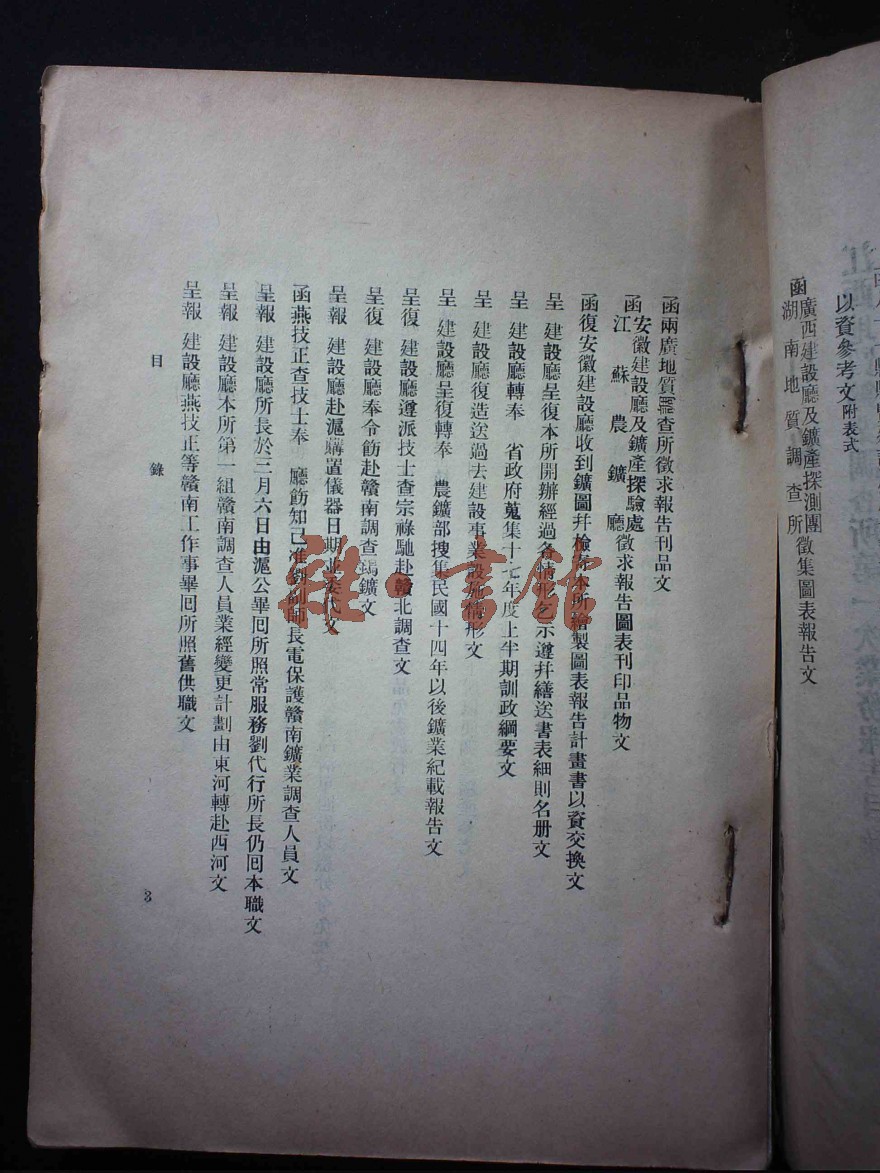 以資參考文附表式
函廣西建設廳及鑛產探測團
湖南地質調查所徵集圖表報告文
函兩廣地質調查所徵求報告刊品文
函安徽建設廳及鑛產探驗處
江蘇農鑛廳徵求報告圖表刊印品物文
函復安徽建設廳收到鑛圖幷檢寄本所繪製圖表報告計畫書以資交換文
呈 建設廳呈復本所開辦經過各情形乞示遵幷繕送書表細則名册文
呈 建設廳轉奉 省政府蒐集十七年度上半期訓政綱要文
呈 建設廳復造送過去建設事業設施情形文
呈 建設廳呈復轉奉 農鑛部搜集民國十四年以後鑛業紀載報告文
呈復 建設廳遵派技士查宗祿馳赴贛北調查文
呈復 建設廳奉令飭赴贛南調查鎢鑛文
呈報 建設廳赴滬購置儀器日期並委代文
函燕技正查技士奉 廳飭知已准劉副師長電保護贛南鑛業調查人員文
呈報 建設廳所長於三月六日由滬公畢囘所照常服務劉代行所長仍囘本職文
呈報 建設廳本所第一組贛南調查人員業經變更計劃由東河轉赴西河文
呈報 建設廳燕技正等贛南工作事畢囘所照舊供職文
目 錄
3